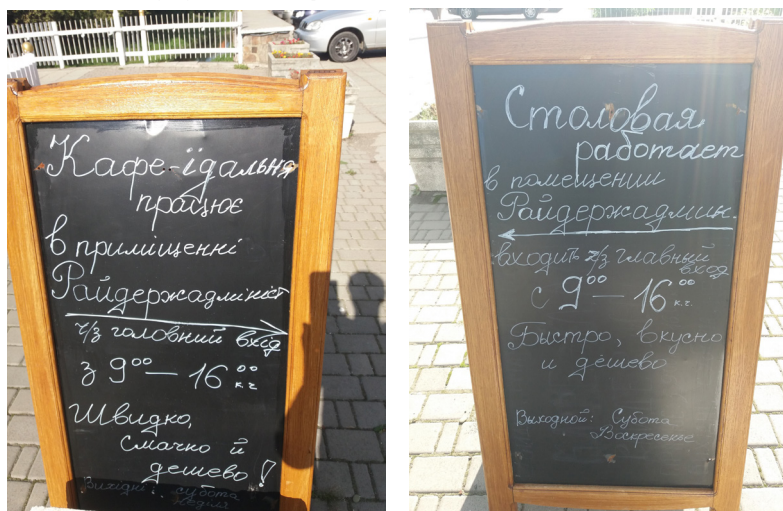 Кафе-їдальня
працює
в приміщенні
Райдержадмініст
ч/з головний вхід
з 9⁰⁰ — 16⁰⁰ к.ч
Швидко,
смачно й
дешево!
Вихідні: субота
неділя
Столовая
работает
в помещении
Райдержадмин.
входить ч/з главный
вход
с 9⁰⁰ — 16⁰⁰ к.ч.
Быстро, вкусно
и дёшево
Выходной: Субота
Воскресение